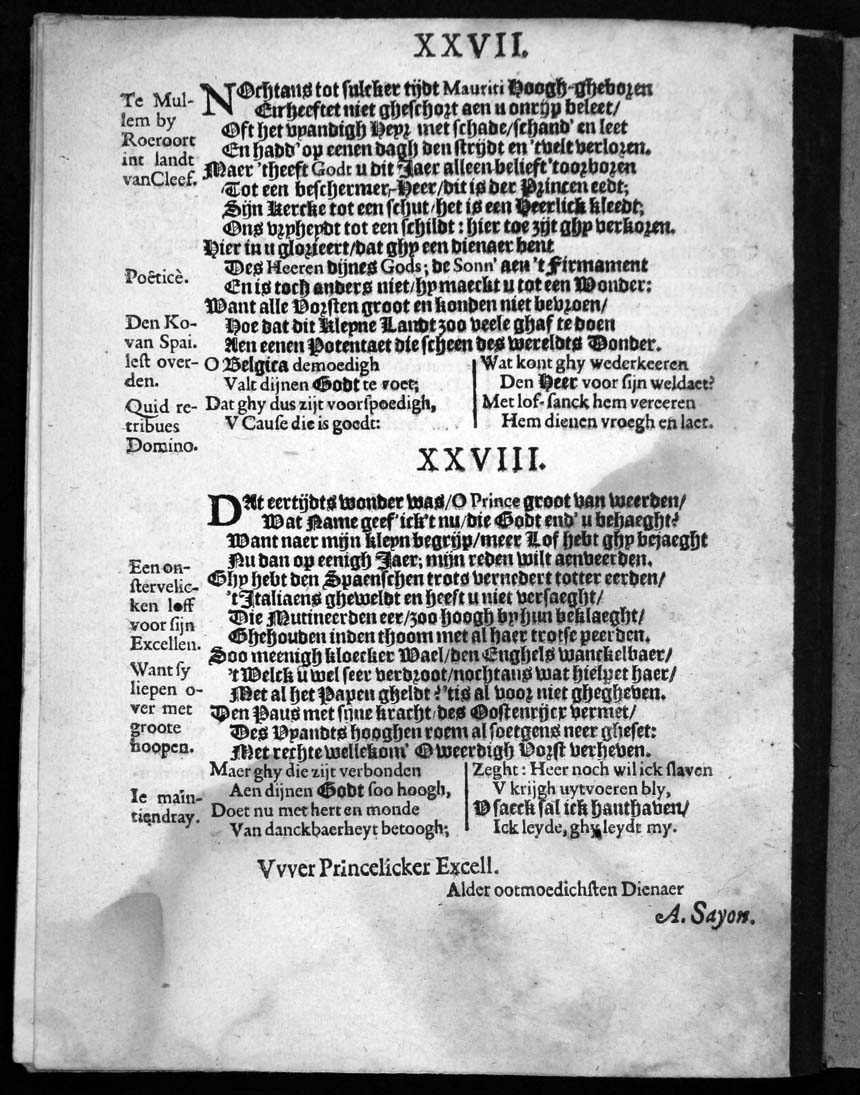 XXVII.
Te Mul-
lem by
Roeroort
int landt
vanCleef.
NOchtans tot sulcker tijdt Mauriti Hoogh-gheboren
En heeftet niet gheschort aen u onrijp beleet/
Oft het vyandigh Heyr met schade/schand' en leet
En hadd' op eenen dagh den strijdt en 'tvelt verloren.
Maer 'theeft Godt u dit Jaer alleen belieft 'toorboren
Tot een beschermer-Heer/dit is der Princen eedt;
Sijn Kercke tot een schut/het is een Heerlick kleedt;
Ons vryheydt tot een schildt: hier toe zijt ghy verkoren.
Hier in u glorieert/dat ghy een dienaer bent
Poëticè.
Des Heeren dijnes Gods; de Sonn' aen 't Firmament
En is toch anders niet/hy maeckt u tot een Wonder:
Want alle Vorsten groot en konden niet bevroen/
Den Ko-
van Spai.
lest over-
den.
Hoe dat dit kleyne Landt zoo veele ghaf te doen
Aen eenen Potentaet die scheen des wereldts Donder.
O Belgica demoedigh
Valt dijnen Godt te voet;
Quid re-
tribues
Domino.
Dat ghy dus zijt voorspoedigh,
V Cause die is goedt:
Wat kont ghy wederkeeren
Den Heer voor sijn weldaet?
Met lof-sanck hem vereeren
Hem dienen vroegh en laet.
XXVIII.
DAt eertijdts wonder was/O Prince groot van weerden/
Wat Name geef' ick't nu/die Godt end' u behaeght?
Want naer mijn kleyn begrijp/meer Lof hebt ghy bejaeght
Nu dan op eenigh Jaer; mijn reden wilt aenveerden.
Een on-
stervelic-
ken loff
voor sijn
Excellen.
Ghy hebt den Spaenschen trots vernedert totter eerden/
't Italiaens gheweldt en heeft u niet versaeght/
Die Mutineerden eer/zoo hoogh by hun beklaeght/
Ghehouden inden thoom met al haer trotse peerden.
Want sy
liepen o-
ver met
groote
hoopen.
Soo meenigh kloecker Wael/den Enghels wanckelbaer/
't Welck u wel seer verdroot/nochtans wat hielpet haer/
Met al het Papen gheldt? 'tis al voor niet ghegheven.
Den Paus met sijne kracht/des Oostenrijcx vermet/
Des Vyandts hooghen roem al soetgens neer gheset:
Met rechte wellekom' O weerdigh Vorst verheven.
Maer ghy die zijt verbonden
Aen dijnen Godt soo hoogh,
Ie main-
tiendray.
Doet nu met hert en monde
Van danckbaerheyt betoogh;
Zeght: Heer noch wil ick slaven
V krijgh uytvoeren bly,
V saeck sal ick hanthaven/
Ick leyde, ghy leydt my.
Vvver Princelicker Excell.
Alder ootmoedichsten Dienaer
A. Sayon.